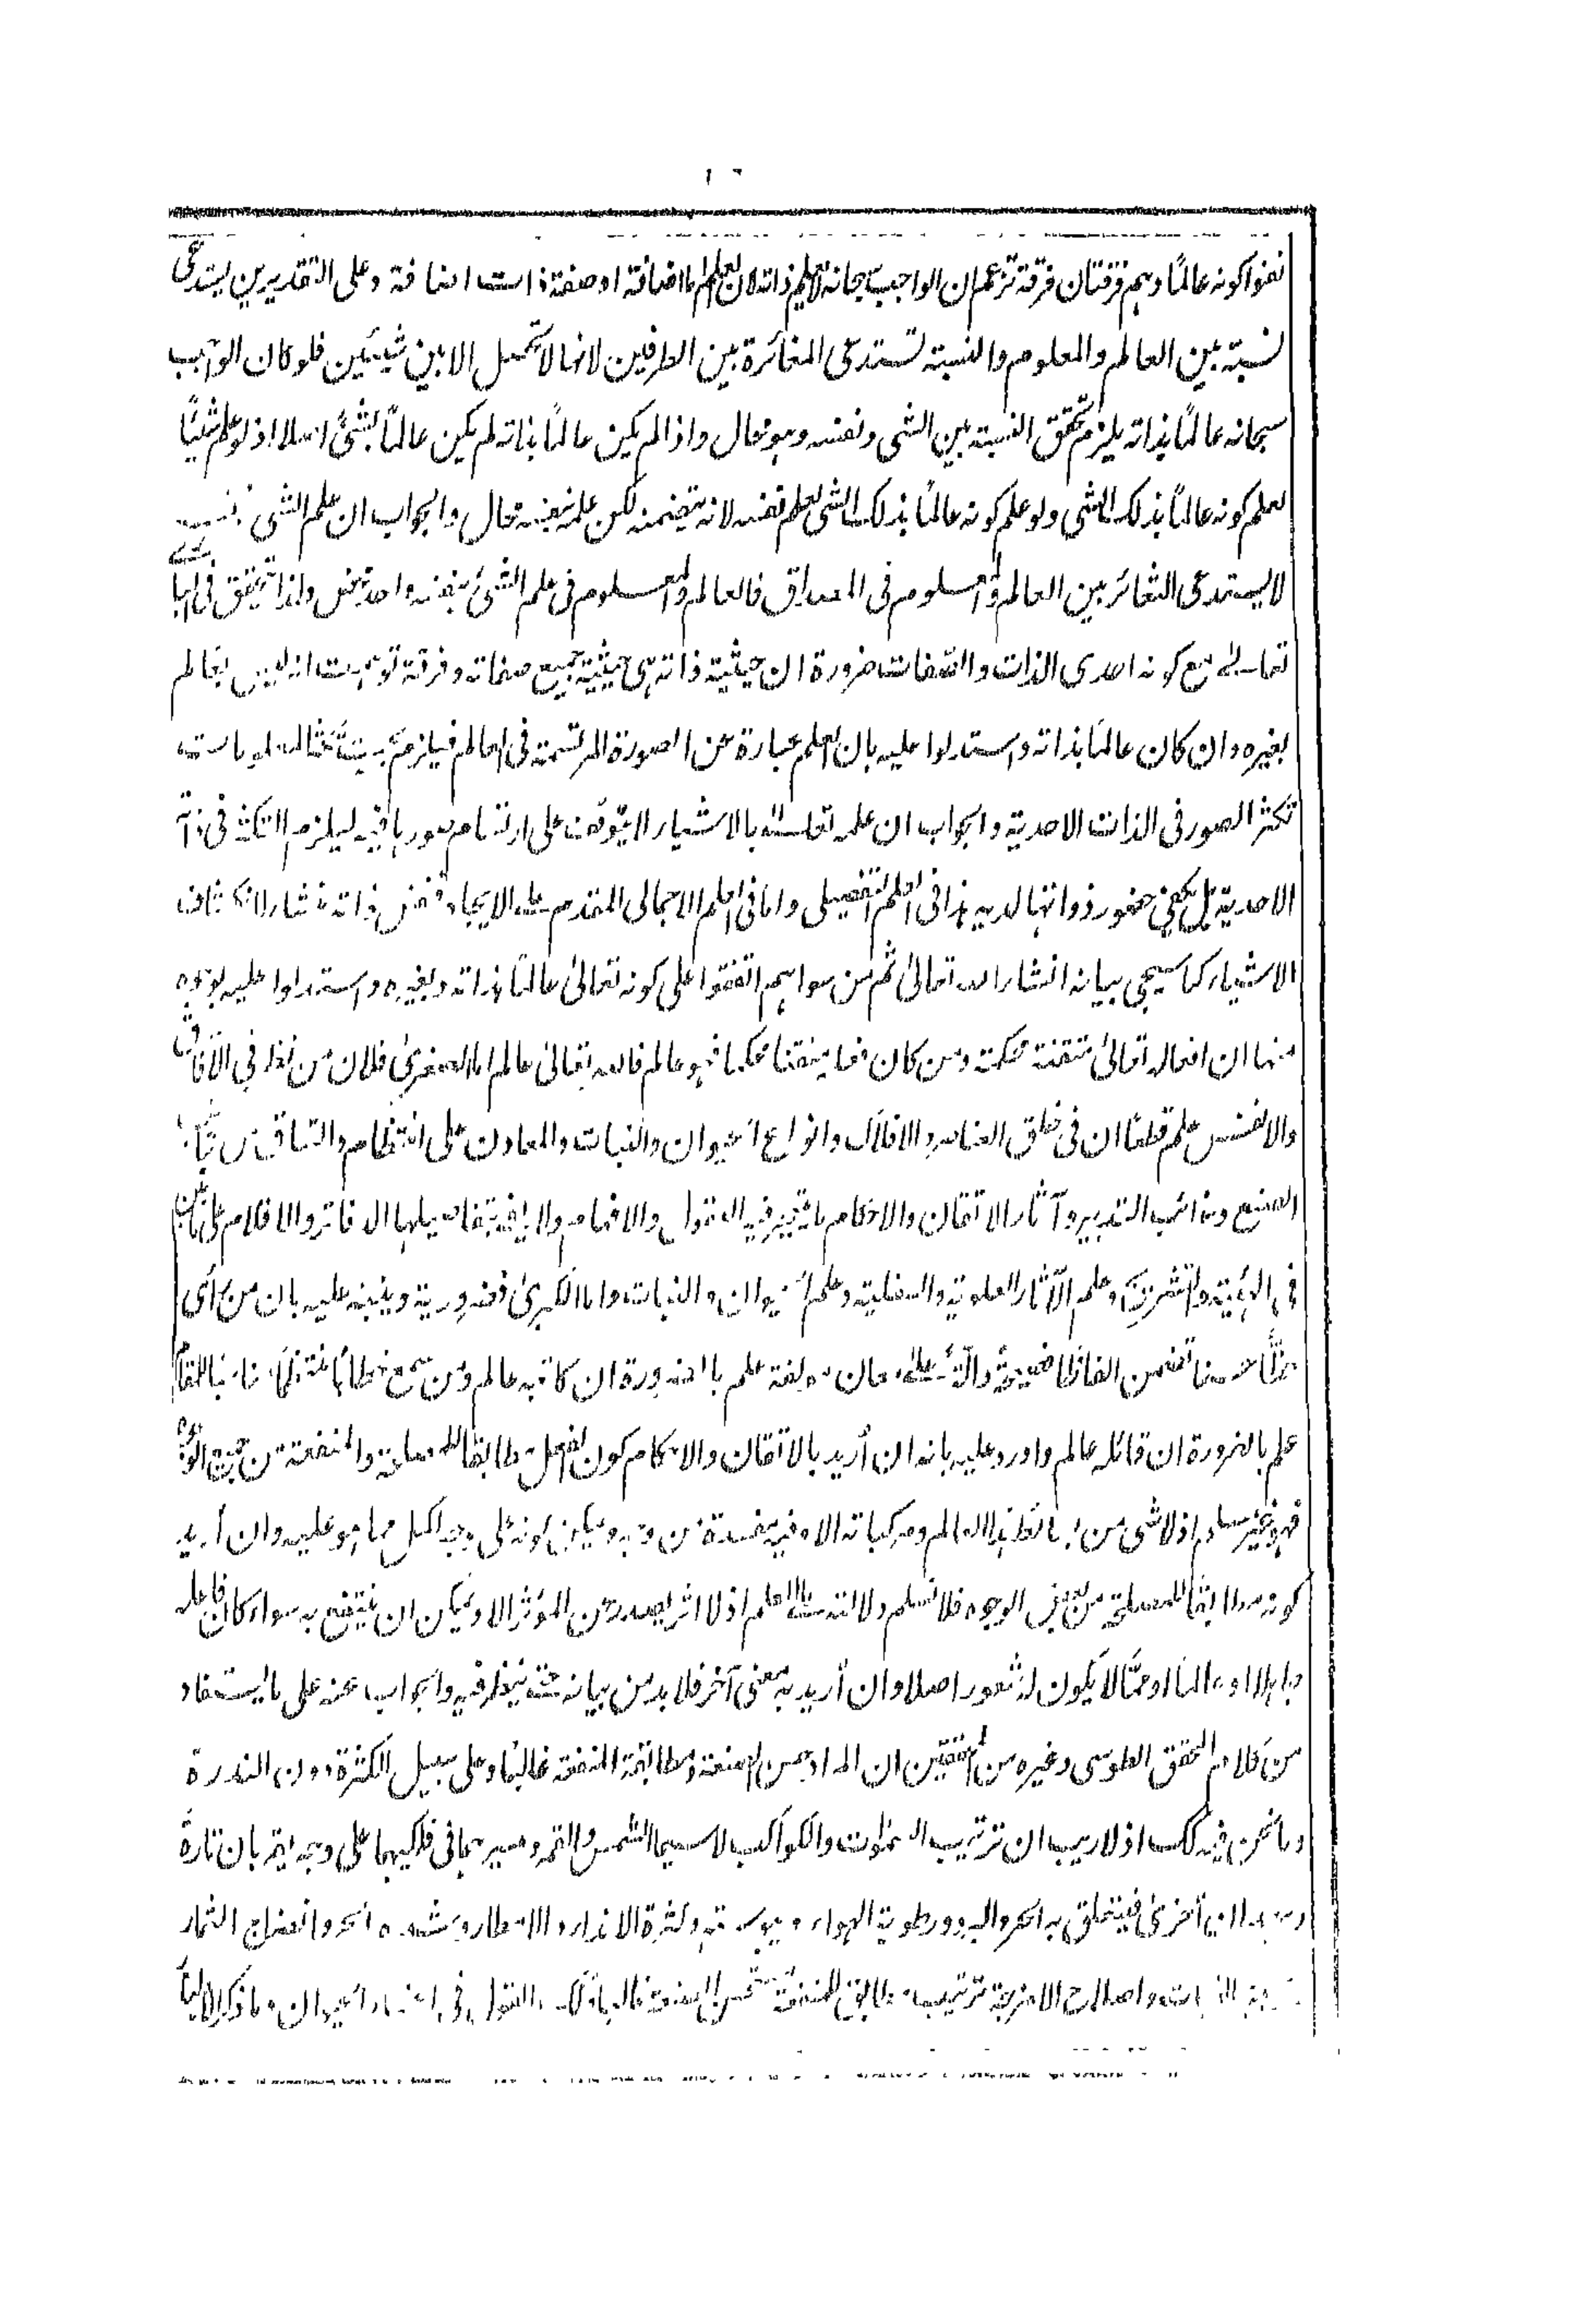 نفوا كونه عالمًا وہم فرقتان فرقة تزعم ان الواجب سبحانه لا يعلم ذاته لان العلم اما اضافة او صفة ذات اضافة وعلى التقديرين يستدعى
نسبة بين العالم والمعلوم والنسبة تستدعى المغائرة بين الطرفين لانها لا تحصل الا بين شيئين فلو كان الواجب
سبحانه عالمًا بذاته يلزم تحقق النسبة بين الشى ونفسه وہو محال واذا لم يكن عالمًا بذاته لم يكن عالمًا بشئ اصلا اذ لو علم شيئًا
لعلم كونه عالمًا بذلك الشى ولو علم كونه عالمًا بذلك الشى لعلم نفسه لانه يتضمنه لكن علمه بنفسه محال والجواب ان علم الشى بنفسه
لا يستدعى التغائر بين العالم والمعلوم فى المصداق فالعالم والمعلوم فى علم الشئ بنفسه واحد محض ولذا تحقق فى البارى
تعالى مع كونه احدى الذات والصفات ضرورة ان حيثية ذاته ہى حيثية جميع صفاته وفرقة توہمت انه ليس بعالم
بغيره وان كان عالمًا بذاته واستدلوا عليه بان العلم عبارة عن الصورة المرتسمة فى العالم فيلزم
تكثر الصور فى الذات الاحدية والجواب ان علمه تعالى بالاشياء لا يتوقف على ارتسام صورہا فيه ليلزم التكثر فى ذاته
الاحدية بل يكفى حضور ذواتها لديه ہذا فى العلم التفصيلى واما فى العلم الاجمالى المقدم على الايجاد فنفس ذاته منشأ لانكشاف
الاشياء كما سيجئ بيانه انشاء الله تعالى ثم من سواہم اتفقوا على كونه تعالى عالمًا بذاته وبغيره واستدلوا عليه بوجوه
منها ان افعاله تعالى متقنة محكمة ومن كان فعله متقنا محكما فہو عالم فالله تعالى عالم اما الصغرى فلان من نظر فى الآفاق
والانفس علم قطعًا ان فى خلق العناصر والافلاك وانواع الحيوان والنبات والمعادن على انتظام واتساق من
الصنع وغرائب التدبير وآثار الاتقان والاحكام ما تتحير فيه العقول والافهام ولا يفى بتفاصيلها الدفاتر والاقلام على ما
فى الہيئة والتشريح وعلم الآثار العلوية والسفلية وعلم الحيوان والنبات واما الكبرى فضرورية وينبه عليه بان من رأى
خطًا حسنا تضمن الفاظا فصيحة دالة على معان علم بالضرورة ان كاتبه عالم ومن سمع خطابًا منتظمًا مناسبا للمقام
علم بالضرورة ان قائله عالم واورد عليه بانه ان أريد بالاتقان والاحكام كون الفعل مطابقا للمصلحة والمنفعة من جميع الوجوه
فہو غير مسلم اذ لا شى من بسائط ہذا العالم ومركباته الا وفيه مفسدة من وجه ويمكن كونه على وجه اكمل مما ہو عليه وان أريد
كونه مطابقًا للمصلحة من بعض الوجوه فلا نسلم دلالته على العلم اذ لا اثر يصدر عن المؤثر الا ويمكن ان ينتفع به سواء كان فاعله
جاہلا او عالمًا او ممّا لا يكون له شعور اصلا وان أريد به معنى آخر فلا بد من بيانه حتى ينظر فيه والجواب عنه على ما يستفاد
من كلام المحقق الطوسى وغيره من المحققين ان المراد بحسن الصنعة ومطابقة المنفعة غالبًا وعلى سبيل الكثرة دون الندرة
وما نحن فيه كذلك اذ لا ريب ان ترتيب السموات والكواكب لا سيما الشمس والقمر ومسيرہما فى فلكيهما على وجه يقربان تارة
ويبعدان أخرى فيتعلق به الحر والبرد ورطوبة الهواء ويبوسته وكثرة الانداء والامطار وشدة الحر وانضاج الثمار
النبات واصلاح الامزجة ترتيب مطابق للمنفعة القول فى اعضاء الحيوان وما ذكر